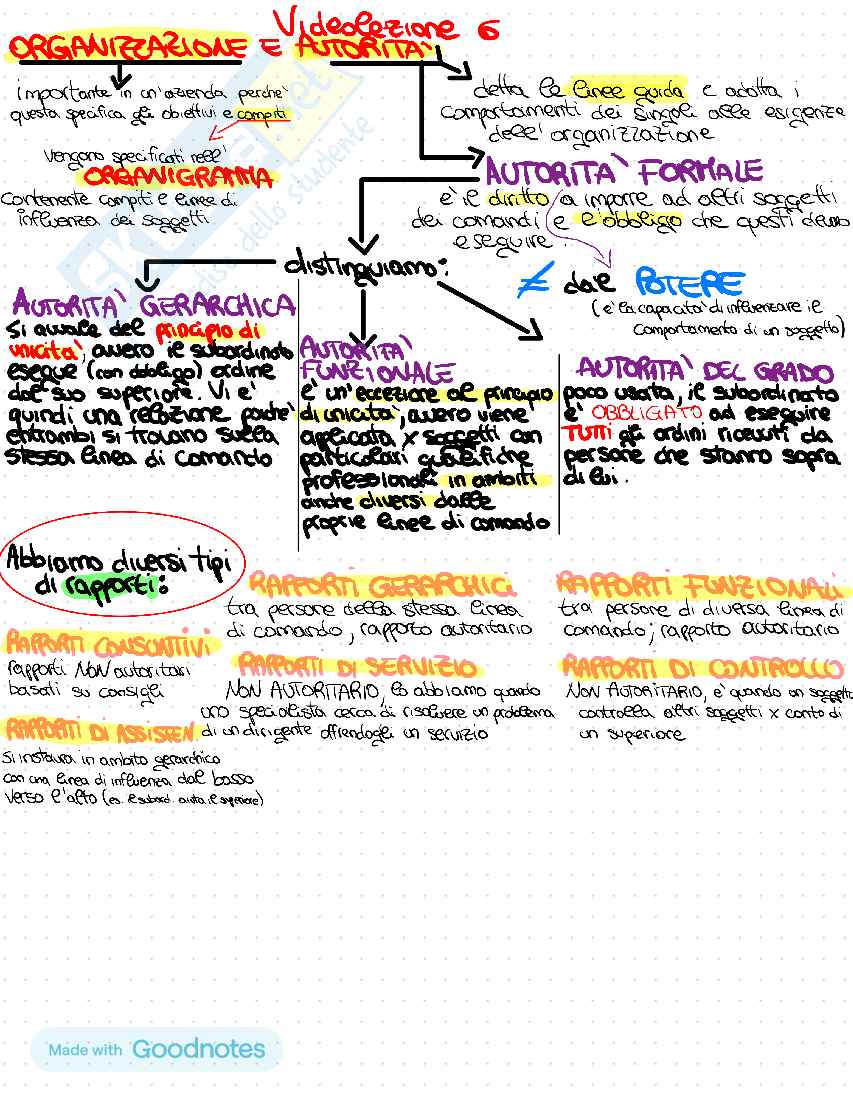 Videolezione 6
ORGANIZZAZIONE E AUTORITA'
importante in un'azienda perche'
questa specifica gli obiettivi e compiti
vengono specificati nell'
ORGANIGRAMMA
contenente compiti e linee di
influenza dei soggetti
detta le linee guida e adotta i
comportamenti dei singoli alle esigenze
dell'organizzazione
AUTORITA' FORMALE
e' il diritto a imporre ad altri soggetti
dei comandi e l'obbligo che questi devono
eseguire
≠ dal POTERE
(e' la capacita' di influenzare il
comportamento di un soggetto)
distinguiamo:
AUTORITA' GERARCHICA
si avvale del principio di
unicita', ovvero il subordinato
esegue (con obbligo) ordine
dal suo superiore. Vi e'
quindi una relazione poiche'
entrambi si trovano sulla
stessa linea di comando
AUTORITA'
FUNZIONALE
e' un'eccezione al principio
di unicita', ovvero viene
applicata x soggetti con
particolari qualifiche
professionali in ambiti
anche diversi dalle
proprie linee di comando
AUTORITA' DEL GRADO
poco usata, il subordinato
e' OBBLIGATO ad eseguire
TUTTI gli ordini ricevuti da
persone che stanno sopra
di lui.
Abbiamo diversi tipi
di rapporti:
RAPPORTI GERARCHICI
tra persone della stessa linea
di comando, rapporto autoritario
RAPPORTI FUNZIONALI
tra persone di diversa linea di
comando; rapporto autoritario
RAPPORTI CONSULTIVI
rapporti NON autoritari
basati su consigli
RAPPORTI DI SERVIZIO
NON AUTORITARIO, lo abbiamo quando
uno specialista cerca di risolvere un problema
di un dirigente offrendogli un servizio
RAPPORTI DI CONTROLLO
NON AUTORITARIO, e' quando un soggetto
controlla altri soggetti x conto di
un superiore
RAPPORTI DI ASSISTEN
si instaura in ambito gerarchico
con una linea di influenza dal basso
verso l'alto (es. il subord. aiuta il superiore)
Made with Goodnotes